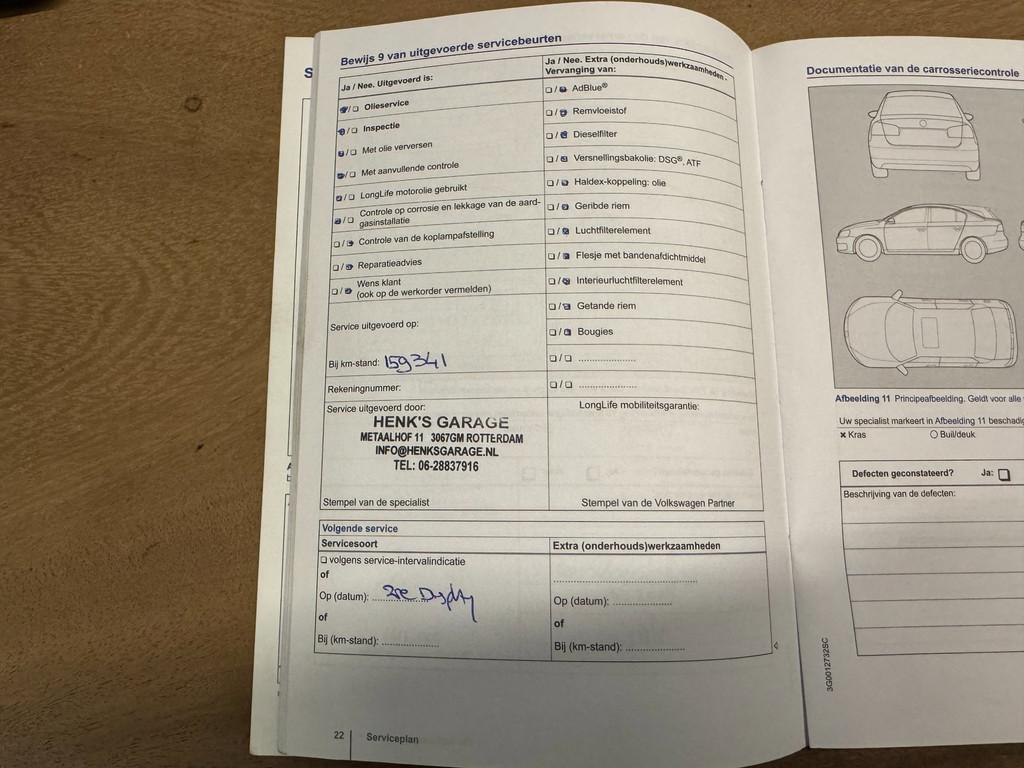 Bewijs 9 van uitgevoerde servicebeurten
Ja / Nee. Uitgevoerd is:
Olieservice
Inspectie
Met olie verversen
Met aanvullende controle
LongLife motorolie gebruikt
Controle op corrosie en lekkage van de aard-
gasinstallatie
Controle van de koplampafstelling
Reparatieadvies
Wens klant
(ook op de werkorder vermelden)
Service uitgevoerd op:
Bij km-stand: 159341
Rekeningnummer:
Service uitgevoerd door:
HENK'S GARAGE
METAALHOF 11 3067GM ROTTERDAM
INFO@HENKSGARAGE.NL
TEL: 06-28837916
Stempel van de specialist
Ja / Nee. Extra (onderhouds)werkzaamheden -
Vervanging van:
AdBlue®
Remvloeistof
Dieselfilter
Versnellingsbakolie: DSG®, ATF
Haldex-koppeling: olie
Geribde riem
Luchtfilterelement
Flesje met bandenafdichtmiddel
Interieurluchtfilterelement
Getande riem
Bougies
LongLife mobiliteitsgarantie:
Stempel van de Volkswagen Partner
Volgende service
Servicesoort
volgens service-intervalindicatie
of
Op (datum):
of
Bij (km-stand):
Extra (onderhouds)werkzaamheden
Op (datum):
of
Bij (km-stand):
22 Serviceplan
Documentatie van de carrosseriecontrole
Afbeelding 11 Principeafbeelding. Geldt voor alle
Uw specialist markeert in Afbeelding 11
Kras
Buil/deuk
Defecten geconstateerd? Ja:
Beschrijving van de defecten:
3G0012732SC